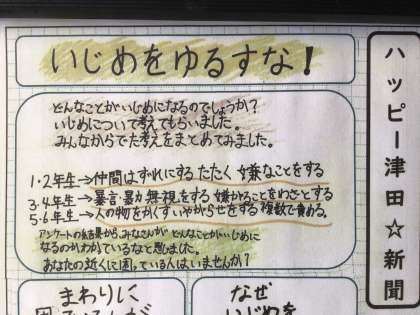 いじめをゆるすな!
ハッピー津田☆新聞
どんなことがいじめになるのでしょうか?
いじめについて考えてもらいました。
みんなからでた考えをまとめてみました。
1・2年生→仲間はずれにする たたく 嫌なことをする
3・4年生→暴言・暴力 無視をする 嫌がることをわざとする
5・6年生→人の物をかくす いやがらせをする 複数で責める。
アンケートの結果から、みなさんが どんなことがいじめに
なるのかわかっているなと思いました。
あなたの近くに困っている人はいませんか?
まわりに
なぜ
いじめを